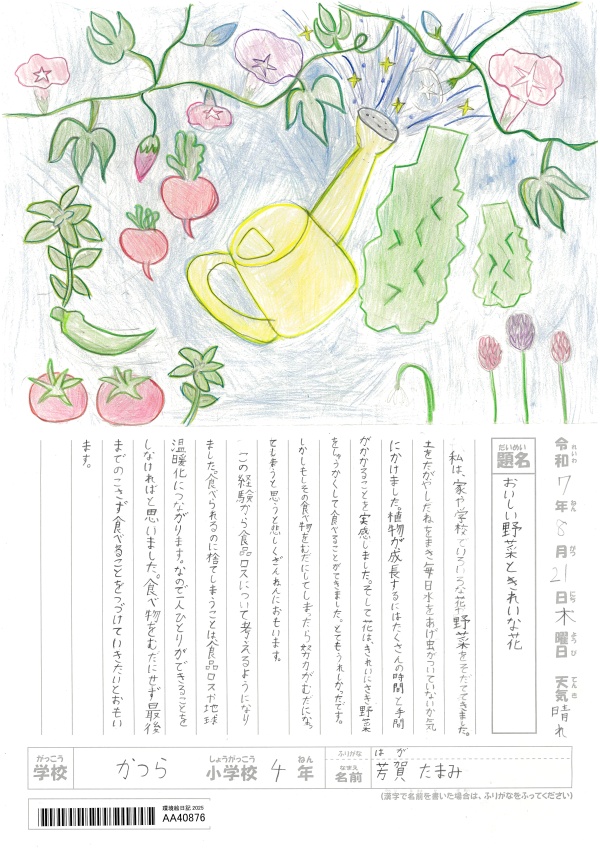 令和7年8月21日木曜日 天気晴れ
れいわ ねん がつ にち ようび てんき
だいめい
題名 おいしい野菜ときれいな花
私は、家や学校でいろいろな花や野菜をそだててきました。
土をたがやしたねをまき毎日水をあげ虫がついていないか気
にかけました。植物が成長するにはたくさんの時間と手間
がかかることを実感しました。そして花は、きれいにさき野菜
をしゅうかくして食べることができました。とてもうれしかったです。
しかしもしその食べ物をむだにしてしまったら努力がむだになっ
てしまうと思うと悲しくざんねんにおもいます。
この経験から食品ロスについて考えるようになり
ました。食べられるのに捨てしまうことは、食品ロスや地球
温暖化につながります。なので一人ひとりができることを
しなければと思いました。食べ物をむだにせず最後
までのこさず食べることをつづけていきたいとおもい
ます。
がっこう しょうがっこう ねん
学校 かつら 小学校 4年
ふりがな はが
なまえ
名前 芳賀 たまみ
(漢字で名前を書いた場合は、ふりがなをふってください)
環境絵日記 2025
AA40876